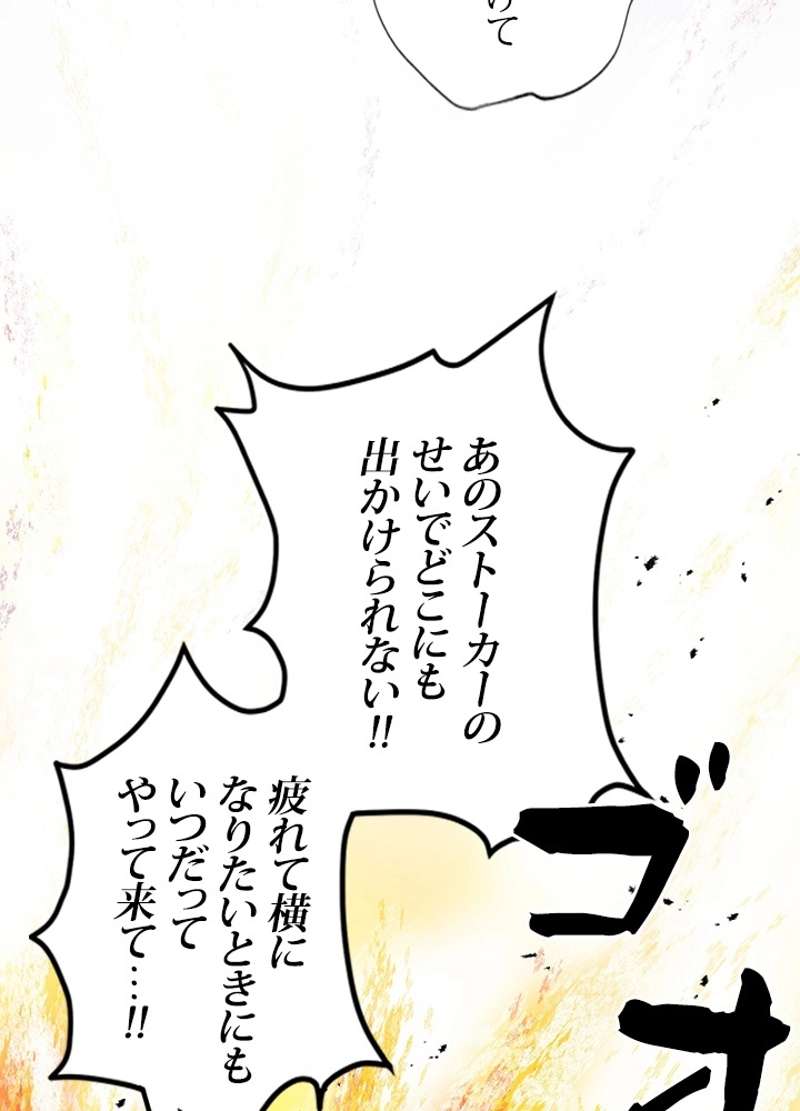 けて
あのストーカーの
せいでどこにも
出かけられない!!
疲れて横に
なりたいときにも
いつだって
やって来て…!!
ゴ
オ